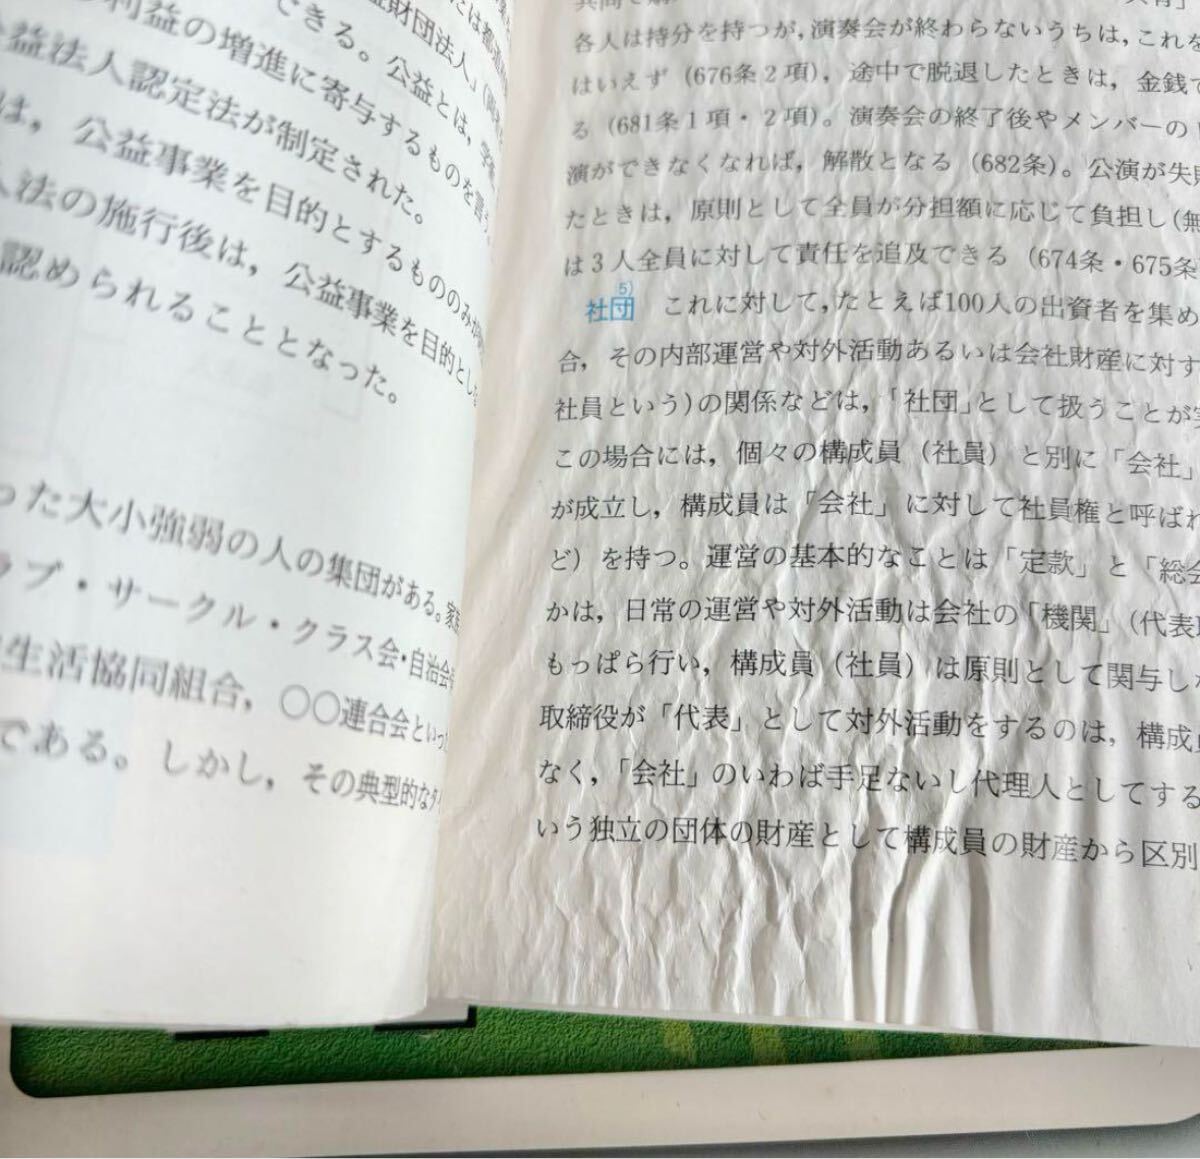 できる。公益とは，学術，
利益の増進に寄与するものを言う。
益法人認定法が制定された。
は，公益事業を目的とするもののみが
人法の施行後は，公益事業を目的とした
認められることとなった。
った大小強弱の人の集団がある。家族
ラブ・サークル・クラス会・自治会
生活協同組合，〇〇連合会といった
である。しかし，その典型的なタイ
各人は持分を持つが，演奏会が終わらないうちは，これを
はいえず（676条2項），途中で脱退したときは，金銭で
る（681条1項・2項）。演奏会の終了後やメンバーの
演ができなくなれば，解散となる（682条）。公演が失敗
たときは，原則として全員が分担額に応じて負担し（無
は3人全員に対して責任を追及できる（674条・675条
社団5) これに対して，たとえば100人の出資者を集め
合，その内部運営や対外活動あるいは会社財産に対す
社員という）の関係などは，「社団」として扱うことが
この場合には，個々の構成員（社員）と別に「会社」
が成立し，構成員は「会社」に対して社員権と呼ばれ
ど）を持つ。運営の基本的なことは「定款」と「総会
かは，日常の運営や対外活動は会社の「機関」（代表取
もっぱら行い，構成員（社員）は原則として関与し
取締役が「代表」として対外活動をするのは，構成員
なく，「会社」のいわば手足ないし代理人としてする
いう独立の団体の財産として構成員の財産から区別